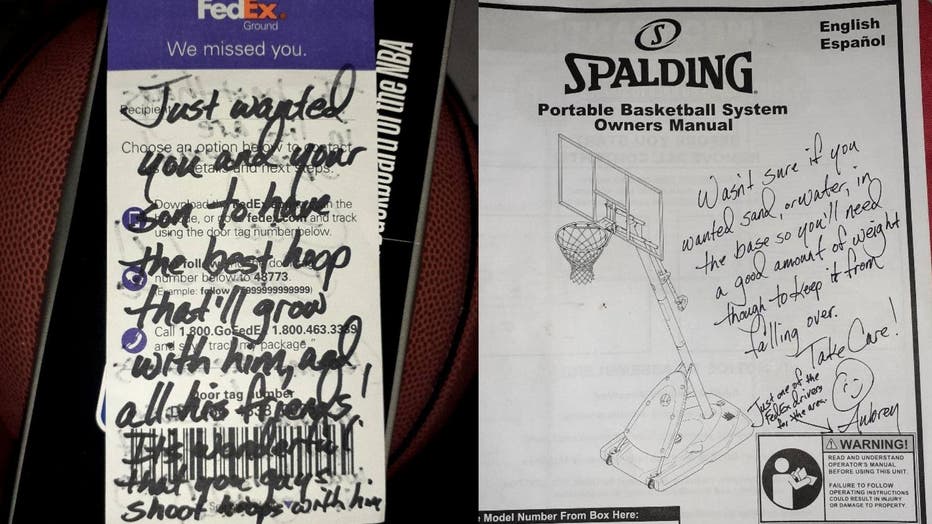 FedEx.
Ground
We missed you.
Just wanted
you and your
son to have
the best hoop
that'll grow
with him, and
all his friends!
It's wonderful
that you guys
shoot hoops with him
Recipient
Choose an option below to contact
details and next steps.
Download the FedEx in the
or go fedex.com and track
using the door tag number below.
follow
number below to 48773.
Example: follow 999999999999)
Call 1.800.GoFedEx 1.800.463.3339
and say "track my package."
Door tag number
Backboard of the NBA
SPALDING
English
Español
Portable Basketball System
Owners Manual
Wasn't sure if you
wanted sand, or water, in
the base so you'll need
a good amount of weight
though to keep it from
falling over.
Take Care!
Just one of the
FedEx drivers
for the area
Aubrey
WARNING!
READ AND UNDERSTAND
OPERATOR'S MANUAL
BEFORE USING THIS UNIT.
FAILURE TO FOLLOW
OPERATING INSTRUCTIONS
COULD RESULT IN INJURY
OR DAMAGE TO PROPERTY.
Model Number From Box Here: